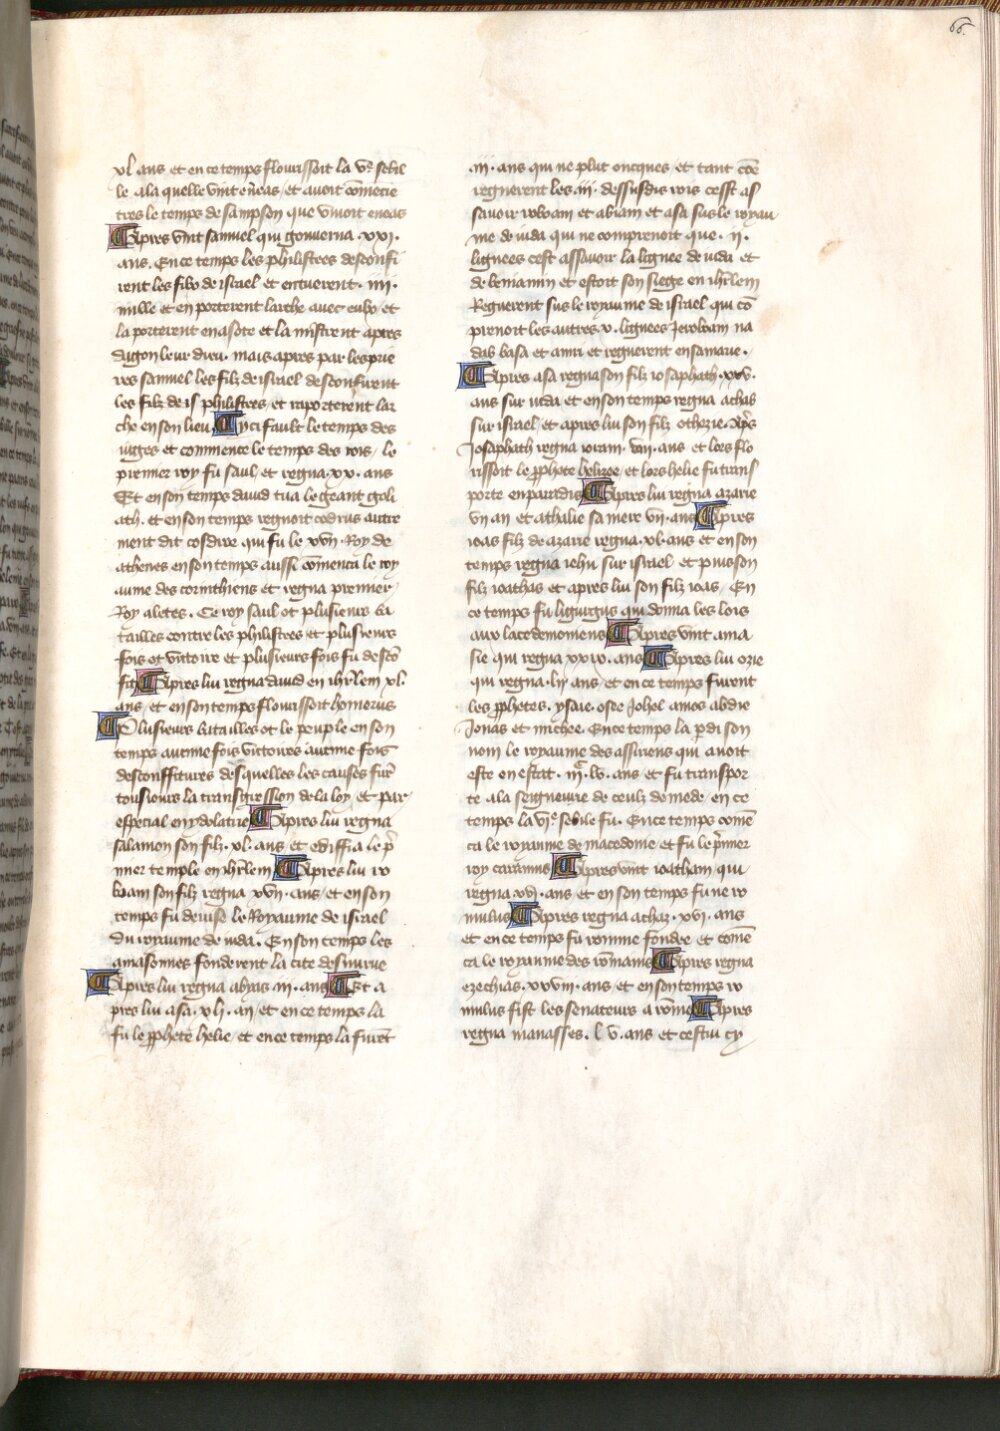 66.
xl. ans et en ce temps flourissoit la ve sebil
le ala quelle vint eneas et auoit comēcie
tres le temps de sampson que viuoit eneas
Apres vint samuel qui gouuerna .xxi.
ans. En ce temps les philistees desconfi
rent les filz de israel et entuerent .iiii.
mille et en porterent larche auec eulx et
la porterent en asote et la mistrent apres
dagon leur dieu. mais apres par les prie
res samuel les filz de israel desconfirent
les filz de is philistees, et raporterent lar
che en son lieu. Cy ci fault le temps des
iuges et commence le temps des rois, le
premier roy fu saul, et regna .xx. ans
Et en son temps dauid tua le geant goli
ath. et en son temps regnoit codrus autre
ment dit cosdrre qui fu le xvii. Roy de
athenes en son temps aussi comēca le roy
aume des corinthiens et regna premier
Roy aletes. Ce roy saul ot plusieurs ba
tailles contre les philistees et plusieurs
fois ot vittoire et plusieurs fois fu descō
fit Apres lui regna dauid en ihrlem xl.
ans, et en son temps flourissoit homerus
Plusieurs batailles ot le peuple en son
temps aucune fois victoires aucune fois
desconffitures desquelles les causes furēt
tousiours la transgression de la loy, et par
especial en ydolatrie Apres lui regna
salamon son filz .xl. ans et ediffia le p̄
mier temple en ihrlem Apres lui ro
boam son filz regna xvii. ans, et en son
temps fu deuise le Royaume de israel
du royaume de iuda. En son temps les
amasonnes fonderent la cite desmirne
Apres lui regna abyas .iii. ans Et a
pres lui asa .xli. an, et en ce temps la
fu le pphete helie, et en ce temps la furēt
.iii. ans qui ne plut oncques et tant cōe
regnerent les .iii. dessusdis rois cesst as
sauoir roboam et abiam et asa sus le royau
me de iuda qui ne comprenoit que .ii.
lignees cest assauoir la lignee de iuda et
de beniamin et estoit son siege en ihrlem
Regnerent sus le royaume de israel qui cō
prenoit les autres .x. lignees Jeroboam na
dab basa et amri et regnerent en samarie.
Apres asa regna son filz iosaphath .xxv.
ans sur iuda et en son temps regna achas
sur israel, et apres lui son filz othozie. Apres
Josaphath regna ioram .viii. ans et lors flo
rissoit le pphete helizee, et lors helie fu trans
porte en paradis Apres lui regna azarie
vn an et athalie sa mere vii. ans Apres
ioas filz de azarie regna .xl. ans et en son
temps regna iehu sur israel et puis son
filz ioathas et apres lui son filz ioas, En
ce temps fu ligurgus qui donna les lois
aux lacedemoniens Apres vint ama
sie qui regna xxix. ans Apres lui ozie
qui regna .lii. ans et en ce temps furent
les pphetes. ysaie. osee Johel amos abdie
Jonas et michee. En ce temps la pdi son
nom le royaume des assiriens qui auoit
este en estat .mc.lv. ans et fu transpor
te ala seigneurie de ceulz de mede, en ce
temps la vie sebile fu. En ce temps comē
ca le royaume de macedoine et fu le p̄mier
roy caramus Apres vint ioatham qui
regna xvi. ans et en son temps fu ne ro
mulus Apres regna athaz .xvi. ans
et en ce temps fu romme fondee et comē
ca le royaume des romains Apres regna
ezechias .xxviii. ans, et en son temps ro
mulus fist les senateurs a rōme Apres
regna manasses. l v. ans et cestui cy